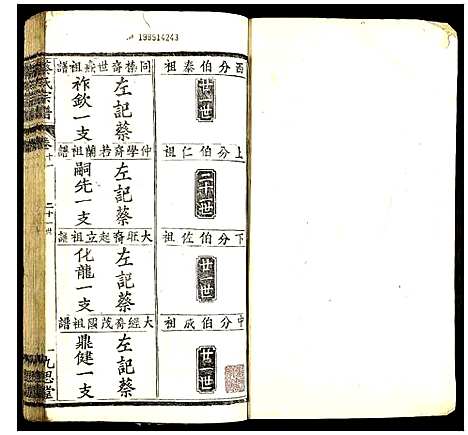 199514243
酉分伯泰祖
廿世
同榛裔世焱祖譜
左記蔡
祚欽一支
上分伯仁祖
二十世
仲學裔若蘭祖譜
左記蔡
嗣先一支
下分伯佐祖
廿世
大旺裔起立祖譜
左記蔡
化龍一支
中分伯成祖
廿世
大經裔茂國祖譜
左記蔡
鼎健一支
蔡氏宗譜
卷十一
二十一世
九思堂